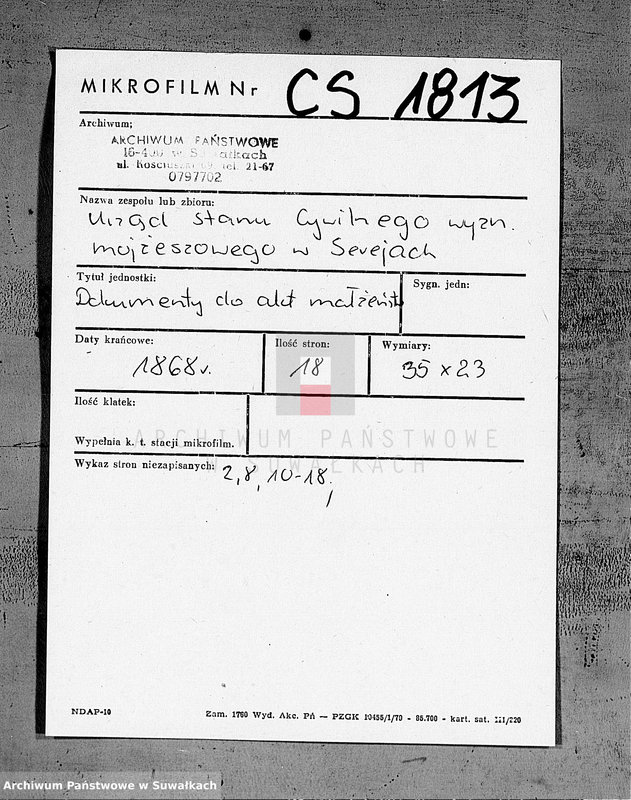 MIKROFILM Nr CS 1813
Archiwum;
ARCHIWUM PAŃSTWOWE
16-400 w Suwałkach
ul. Kościuszki 69, tel. 21-67
0797702
Nazwa zespołu lub zbioru:
Urząd Stanu Cywilnego wyzn.
mojżeszowego w Serejach
Tytuł jednostki:
Sygn. jedn:
Dokumenty do akt małżeństw
Daty krańcowe:
Ilość stron:
Wymiary:
1868 r.
18
35 x 23
Ilość klatek:
ARCHIWUM PAŃSTWOWE
W SUWAŁKACH
Wypełnia k. t. stacji mikrofilm.
Wykaz stron niezapisanych: 2, 8, 10-18,
NDAP-10
Zam. 1760 Wyd. Akc. Pń — PZGK 10455/1/70 - 85.700 - kart. sat. III/220
Archiwum Państwowe w Suwałkach